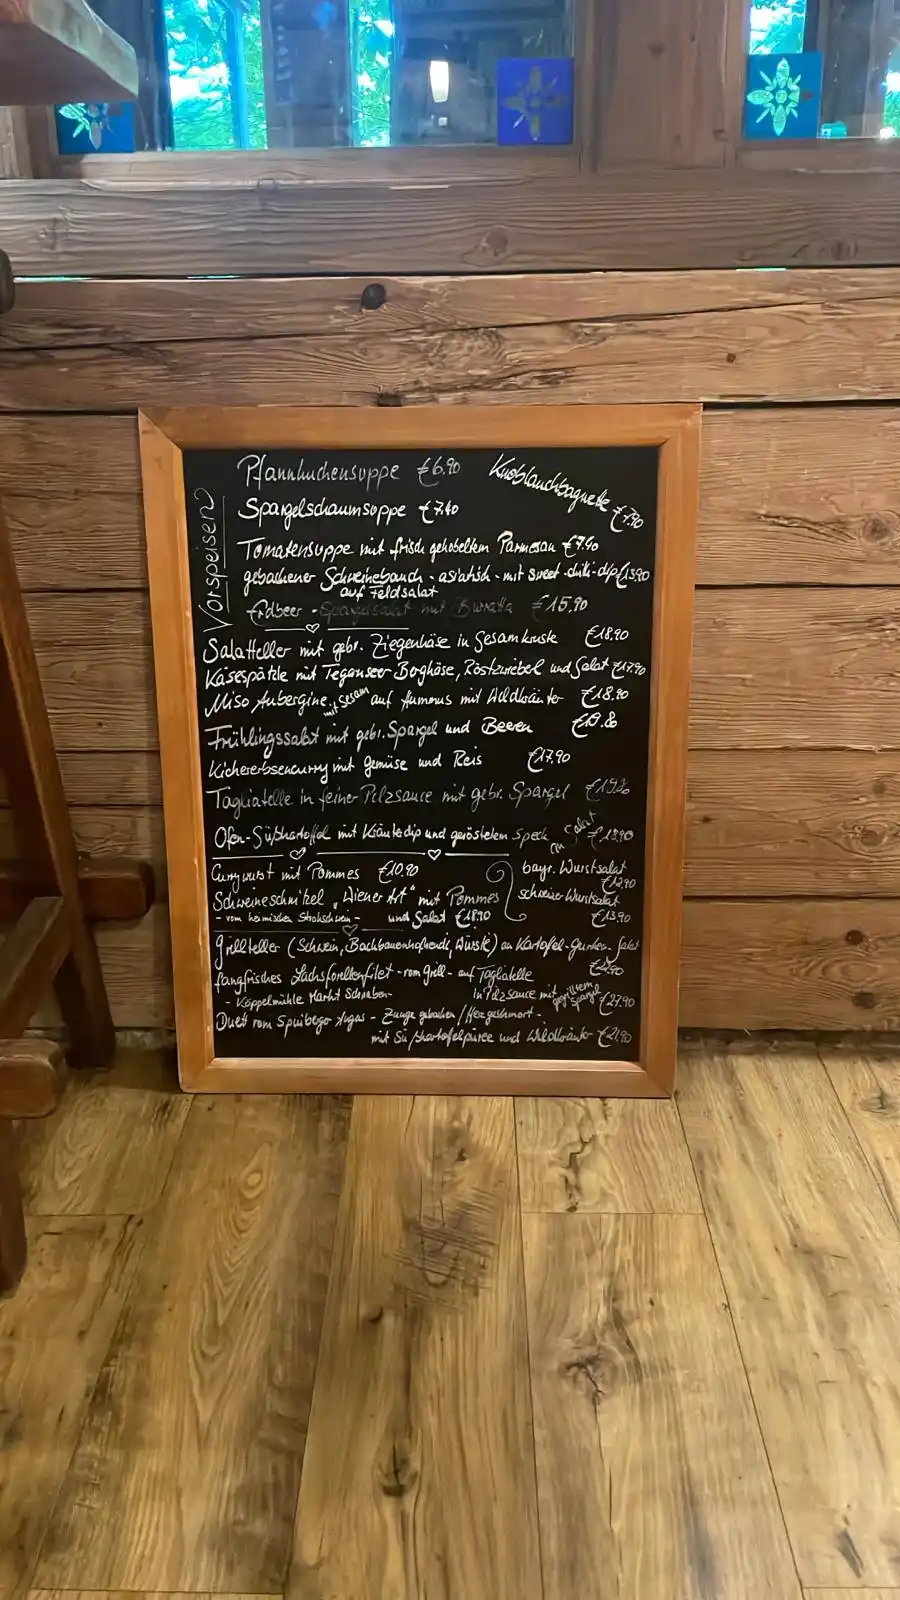 Vorspeisen
Pfannkuchensuppe €6.90
Knoblauchbaguette €7.90
Spargelschaumsuppe €7.40
Tomatensuppe mit frisch gehobeltem Parmesan €7.90
gebackener Schweinebauch - asiatisch - mit sweet-chilli-dip €13.90
auf Feldsalat
Erdbeer - Spargelsalat mit Burrata €15.90
Salatteller mit gebr. Ziegenkäse in Sesamkruste €18.90
Käsespätzle mit Tegernseer Bergkäse, Röstzwiebel und Salat €17.90
Miso Aubergine mit Sesam auf Hummus mit Wildkräuter €18.90
Frühlingssalat mit gebr. Spargel und Beeren
Kichererbsencurry mit Gemüse und Reis €17.90
Tagliatelle in feiner Pilzsauce mit gebr. Spargel
Ofen-Süßkartoffel mit Kräuterdip und geröstetem Speck an Salat €18.90
Currywurst mit Pommes €10.90
bayr. Wurstsalat
€12.90
Schweineschnitzel "Wiener Art" mit Pommes
- vom heimischen Strohschwein - und Salat €18.90
schweizer Wurstsalat
€13.90
Grillteller (Schwein, Würstl) an Kartoffel-Gurken-Salat
fangfrisches Lachsforellenfilet - vom Grill - auf Tagliatelle
- Köppelmühle Markt Schwaben - in Pilzsauce mit gegrilltem Spargel €27.90
Duett vom - Zunge gebacken / Herz geschmort -
mit Süßkartoffelpüree und Wildkräuter €21.90